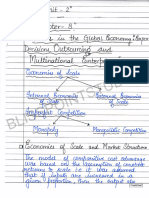 Unit - 2"
Chapter - 8"
in the Global Economy:
Decision, Outsourcing and
Multinational Enterprise
Economies of Scale
Internal Economies
of Scale
External Economies
of Scale
Imperfect Competition
Monopoly
Monopolistic Competition
Economies of Scale and Market Structure
The model of comparative cost advantage
was based on the assumption of constant
returns to scale i.e it was assumed
that if inputs are increased in a
given proportion, then the output also